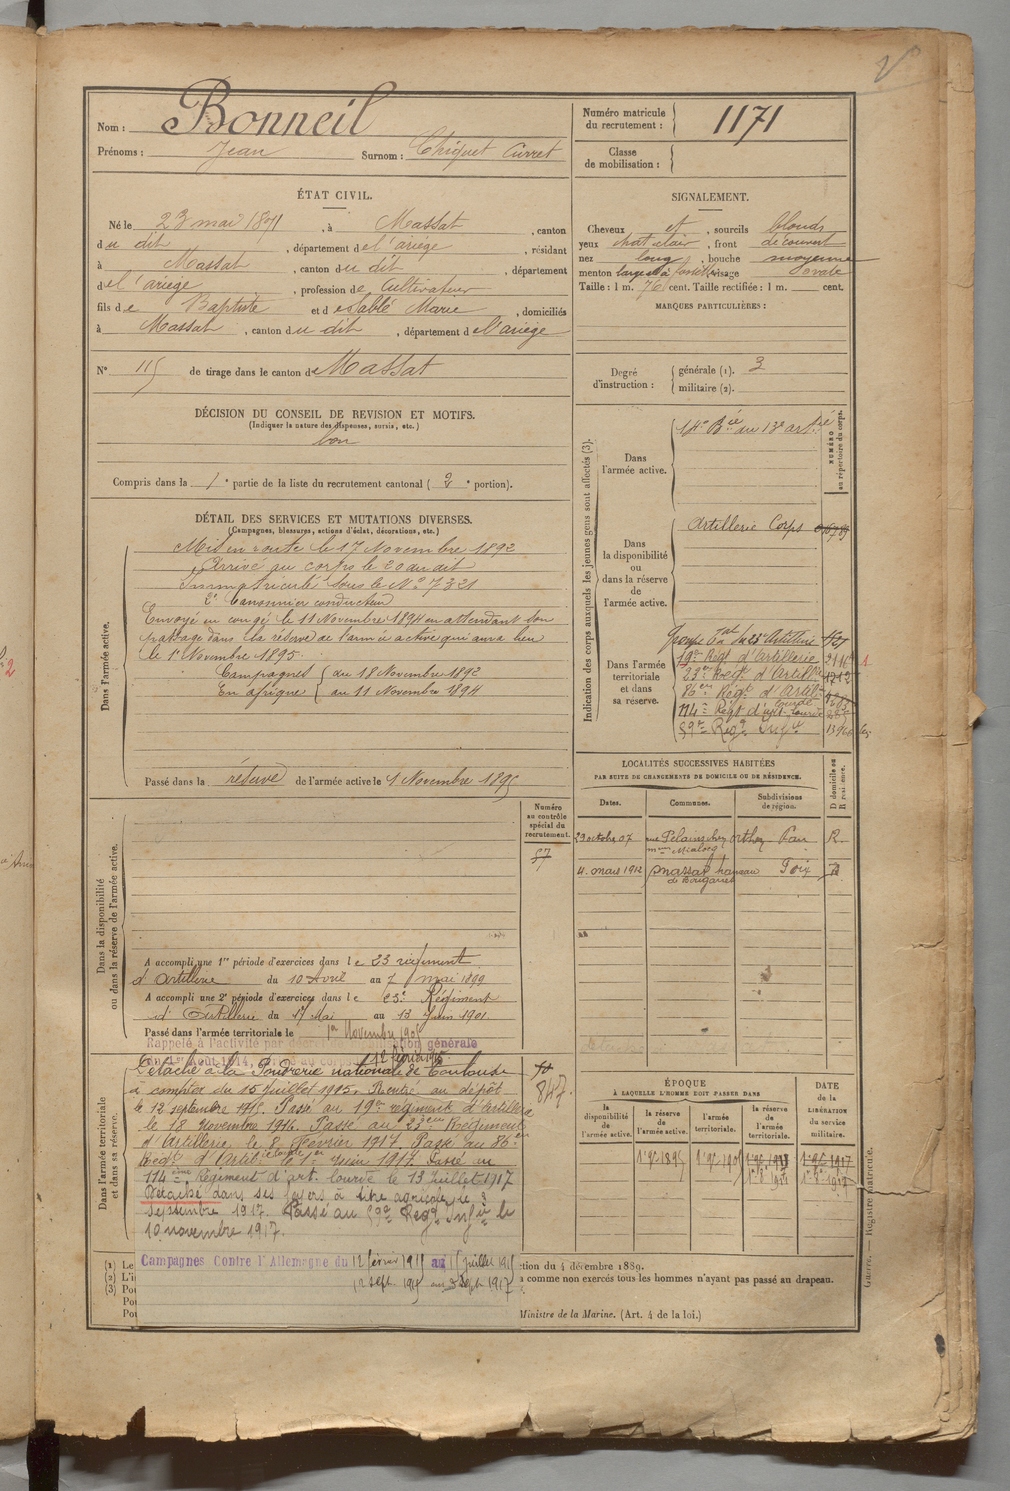 Nom : Bonneil
Prénoms : Jean Surnom : Chiquet Curret
Numéro matricule du recrutement : 1171
Classe de mobilisation :
ÉTAT CIVIL.
Né le 23 mai 1871, à Massat, canton
du dit, département de l'ariège, résidant
à Massat, canton du dit, département
de l'ariège, profession de Cultivateur
fils de Baptiste et d'establé Marie, domiciliés
à Massat, canton du dit, département de l'ariège
N° 115 de tirage dans le canton de Massat
DÉCISION DU CONSEIL DE REVISION ET MOTIFS.
(Indiquer la nature des dispenses, sursis, etc.)
bon
Compris dans la 1e partie de la liste du recrutement cantonal (2e portion).
SIGNALEMENT.
Cheveux et, sourcils blonds
yeux chat clair, front découvert
nez long, bouche moyenne
menton large à fossette visage ovale
Taille : 1 m. 76 cent. Taille rectifiée : 1 m. cent.
MARQUES PARTICULIÈRES :
Degré d'instruction :
générale (1). 3
militaire (2).
DÉTAIL DES SERVICES ET MUTATIONS DIVERSES.
(Campagnes, blessures, actions d'éclat, décorations, etc.)
Dans l'armée active.
Mis en route le 17 Novembre 1892
Arrivé au corps le 20 au dit
Immatriculé sous le N° 7321
2e Canonnier conducteur
Envoyé en congé le 11 Novembre 1894 en attendant son
passage dans la réserve de l'armée active qui aura lieu
le 1r Novembre 1895
Campagnes du 18 Novembre 1892
En afrique au 11 Novembre 1894
Passé dans la réserve de l'armée active le 1 Novembre 1895
Indication des corps auxquels les jeunes gens sont affectés (3).
NUMÉRO au répertoire du corps.
Dans l'armée active.
14e Bie au 13e artrie
Dans la disponibilité ou dans la réserve de l'armée active.
Artillerie Corps
Dans l'armée territoriale et dans sa réserve.
Groupe Tal du 23e Artillerie
19e Régt d'Artillerie
23e Régt d'Artillie
86e Régt d'Artil lourde
114e Régt d'art. lourde
59e Régt Infie
LOCALITÉS SUCCESSIVES HABITÉES
PAR SUITE DE CHANGEMENTS DE DOMICILE OU DE RÉSIDENCE.
Dates. Communes. Subdivisions de région. D domicile ou R résidence.
29 octobre 07 Orthez Pau R.
4. mars 1912 Massat hameau Foix
Numéro au contrôle spécial du recrutement.
57
Dans la disponibilité ou dans la réserve de l'armée active.
A accompli une 1re période d'exercices dans le 23 régiment
d'Artillerie du 10 Avril au 7 mai 1899
A accompli une 2e période d'exercices dans le 23e Régiment
d'Artillerie du 17 Mai au 13 Juin 1901.
Passé dans l'armée territoriale le 1er Novembre 1905
Rappelé à l'activité par décret de mobilisation générale
du 1er Août 1914. 12 février 1915.
Dans l'armée territoriale et dans sa réserve.
Détaché à la Poudrerie nationale de Toulouse
à compter du 15 Juillet 1915. Rentré au dépôt
le 12 septembre 1915. Passé au 19e régiment d'Artillerie
le 18 Novembre 1916. Passé au 23eme Régiment
d'Artillerie le 8 Février 1917. Passé au 86e
Régt d'Artil lourde le 1er Juin 1917. Passé au
114eme Régiment d'art. lourde le 13 Juillet 1917
Détaché dans ses foyers à titre agricole le 3
Septembre 1917. Passé au 59e Régt Infie le
10 novembre 1917.
847.
Campagnes Contre l'Allemagne du 12 février 1915 au 15 Juillet 1915
12 sept. 1915 au 3 Sept 1917
ÉPOQUE
À LAQUELLE L'HOMME DOIT PASSER DANS
la disponibilité de l'armée active. la réserve de l'armée active. l'armée territoriale. la réserve de l'armée territoriale.
DATE de la LIBÉRATION du service militaire.
1er 9e 1895 1er 9e 1905
(1) Le
(2) L'i
(3) Pou
Pou
Pou
tion du 4 décembre 1889.
s comme non exercés tous les hommes n'ayant pas passé au drapeau.
Ministre de la Marine. (Art. 4 de la loi.)
Guerre. — Registre matricule.